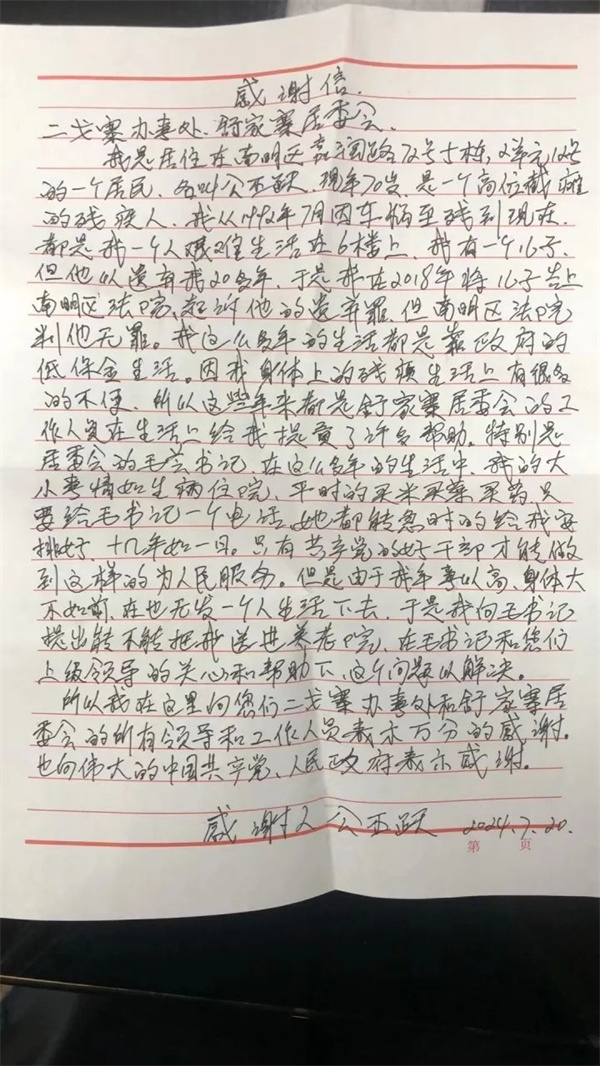 感谢信.
二戈寨办事处、舒家寨居委会.
我是居住在南明区嘉润路72号1栋,2单元,12号
的一个居民,名叫公丕跃,现年70岁,是一个高位截瘫
的残疾人,我从1992年7月因车祸至残到现在,
都是我一个人艰难生活在6楼上,我有一个儿子,
但他以遗弃我20多年,于是我在2018年将儿子告上
南明区法院,起诉他的遗弃罪,但南明区法院
判他无罪。我这么多年的生活都是靠政府的
低保金生活。因我身体上的残疾生活上有很多
的不便,所以这些年来都是舒家寨居委会的工
作人员在生活上给我提贡了许多帮助。特别是
居委会的毛兰书记,在这么多年的生活中,我的大
小事情如生病住院,平时的买米买菜买药,只
要给毛书记一个电话,她都能急时的给我安
排好,十几年如一日。只有共产党的好干部才能做
到这样的为人民服务。但是由于我年事以高、身体大
不如前,在也无发一个人生活下去,于是我向毛书记
提出能不能把我送进养老院,在毛书记和您们
上级领导的关心和帮助下,这个问题以解决。
所以我在这里向您们二戈寨办事处和舒家寨居
委会的所有领导和工作人员表示万分的感谢.
也向伟大的中国共产党、人民政府表示感谢.
感谢人 公丕跃 2024.7.20.
第 页